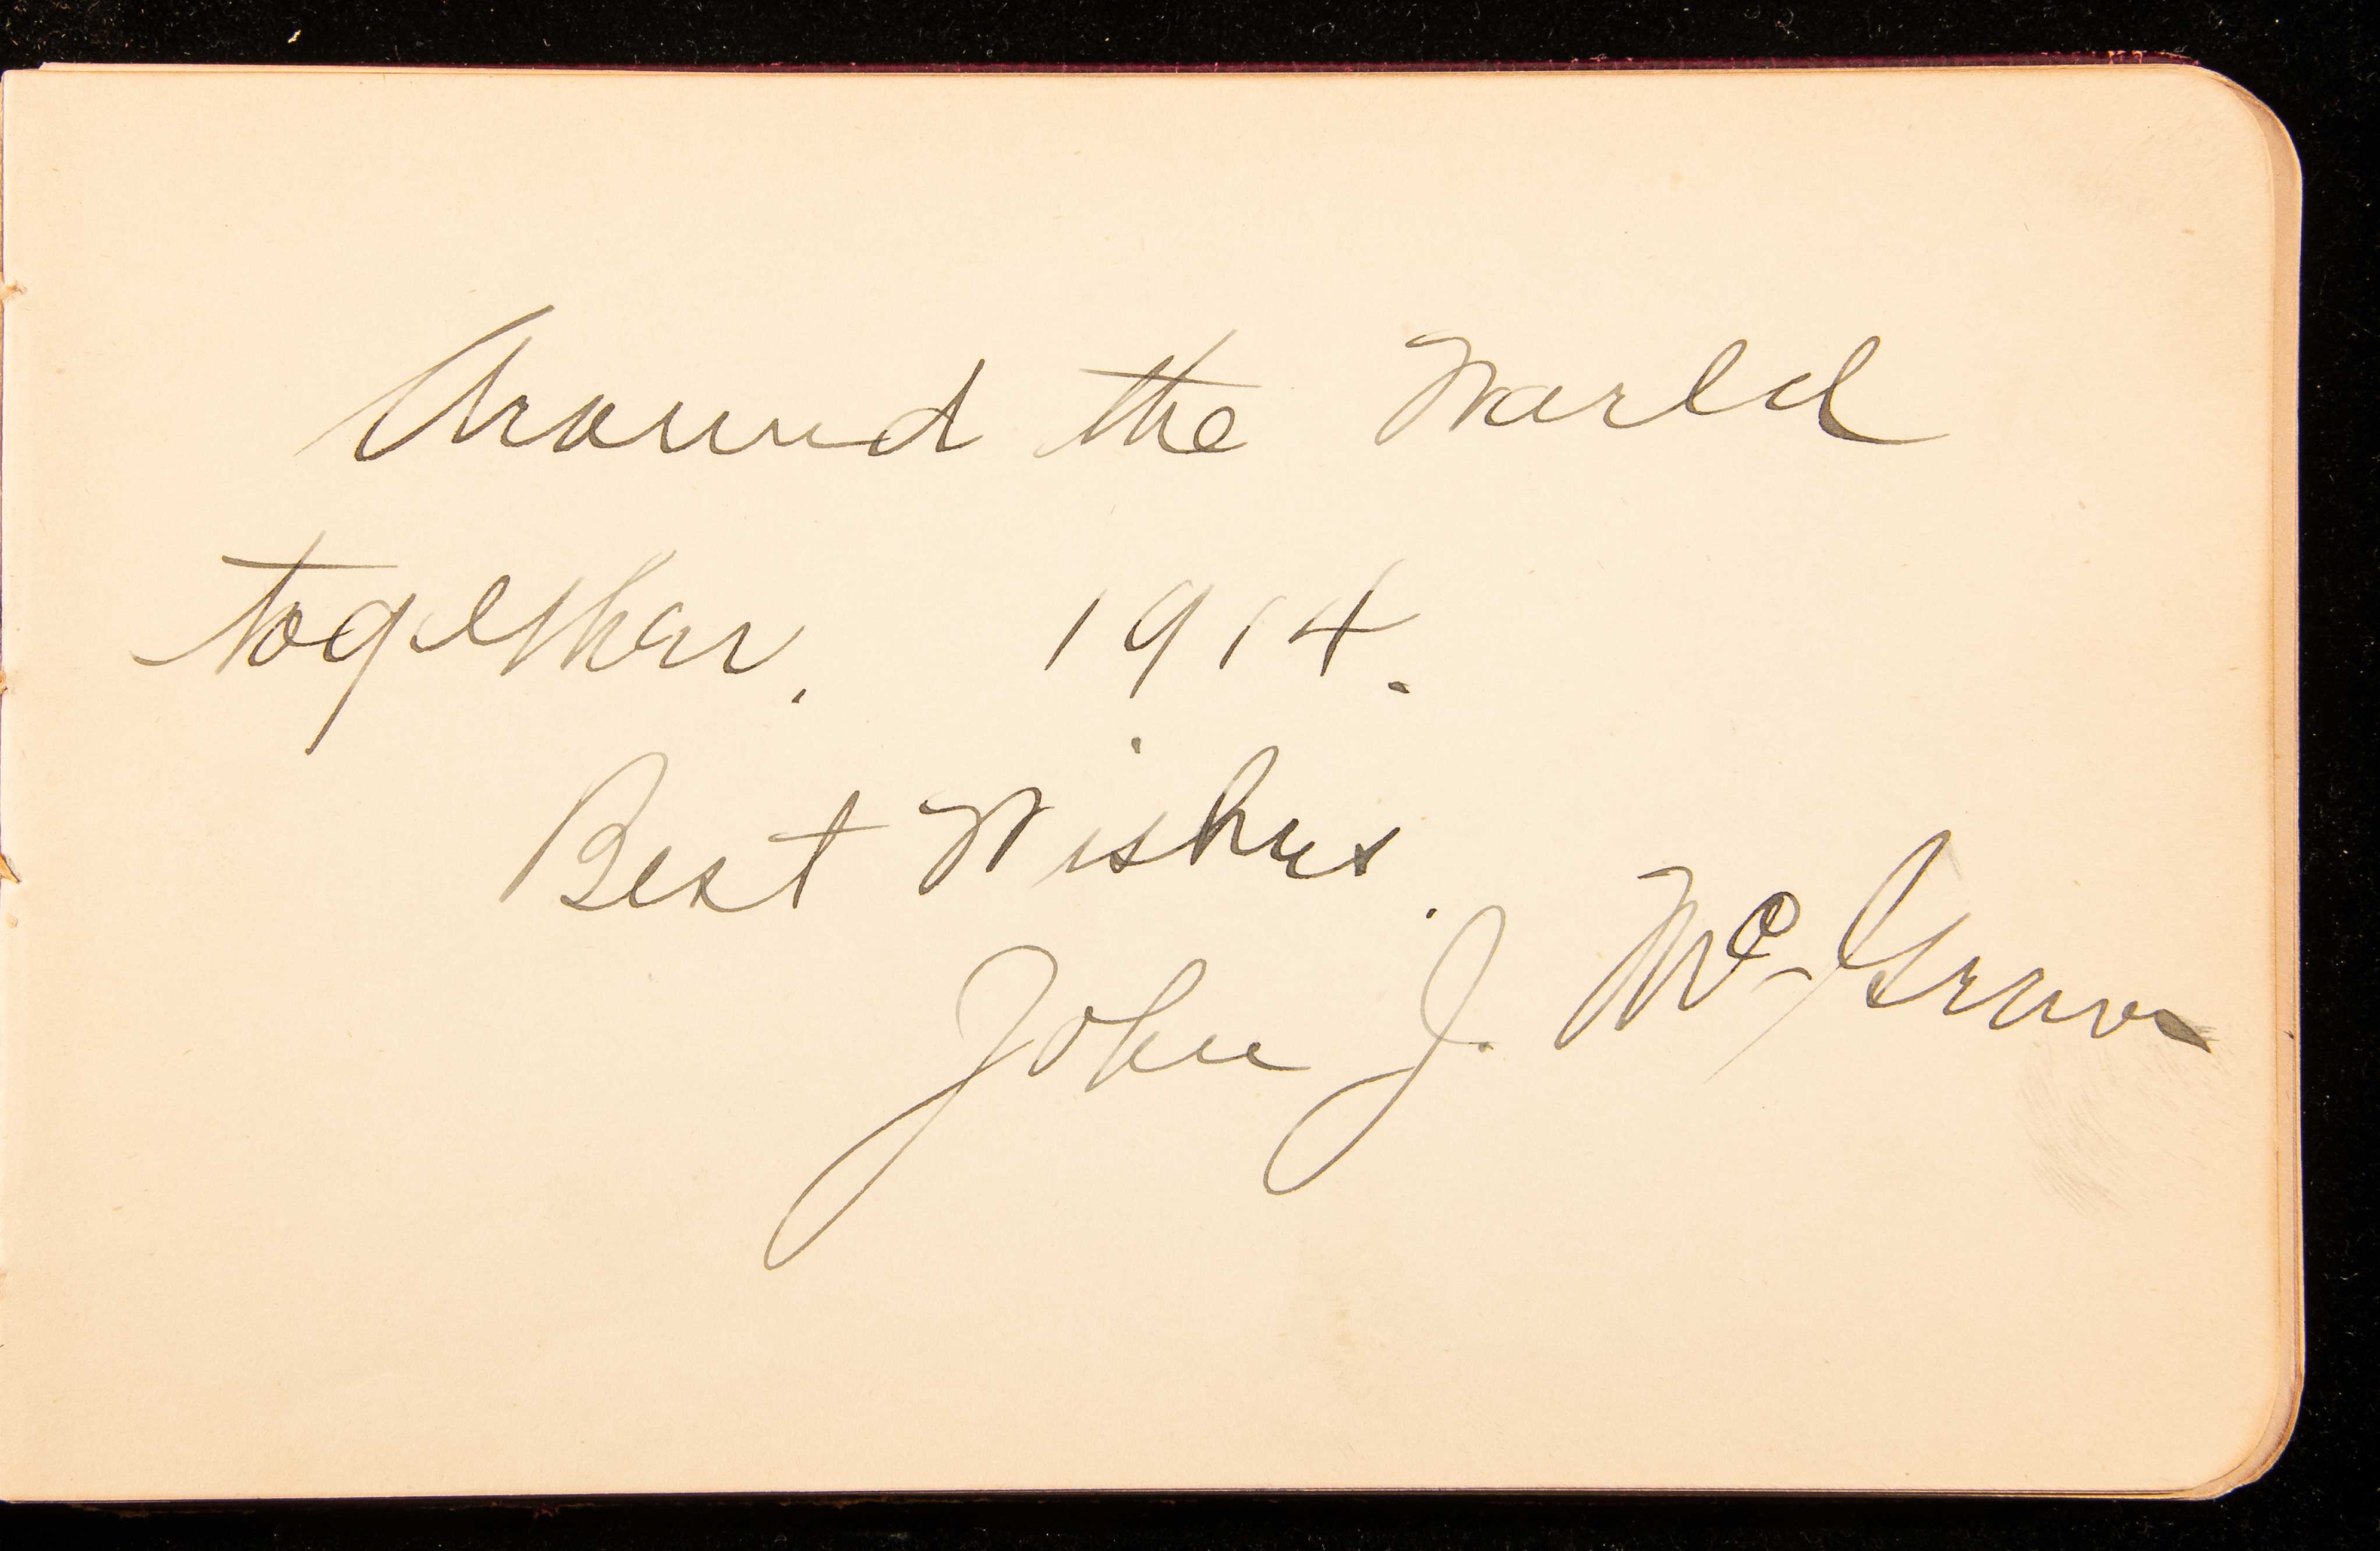 Around the World
together. 1914.
Best Wishes.
John J. McGraw